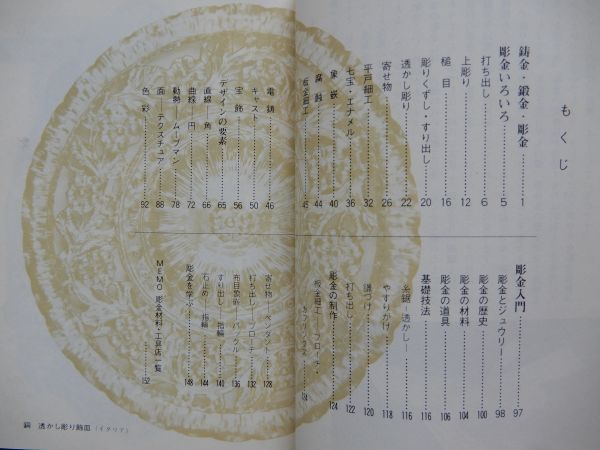 もくじ
鋳金・鍛金・彫金……1
彫金いろいろ……5
打ち出し……6
上彫り……12
槌目……16
彫りくずし・すり出し……20
透かし彫り……22
寄せ物……26
平戸細工……32
七宝・エナメル……36
象嵌……40
腐蝕……44
板金細工……45
電鋳……46
キャスト……50
宝飾……56
デザインの要素……65
直線――角……66
曲線――円……72
動勢――ムーブマン……78
面――テクスチュア……88
色彩……92
彫金入門……97
彫金とジュウリー……98
彫金の歴史……100
彫金の材料……104
彫金の道具……106
基礎技法……116
糸鋸―透かし―……116
やすりがけ……118
鑞づけ……120
打ち出し……122
彫金の制作……124
板金細工――ブローチ・カフリンクス……124
寄せ物――ペンダント……128
打ち出し――ブローチ……132
布目象嵌――バックル……136
すり出し――指輪……140
石止め――指輪……144
彫金を学ぶ……148
MEMO 彫金材料・工具店一覧……152
銅 透かし彫り飾皿(イタリア)